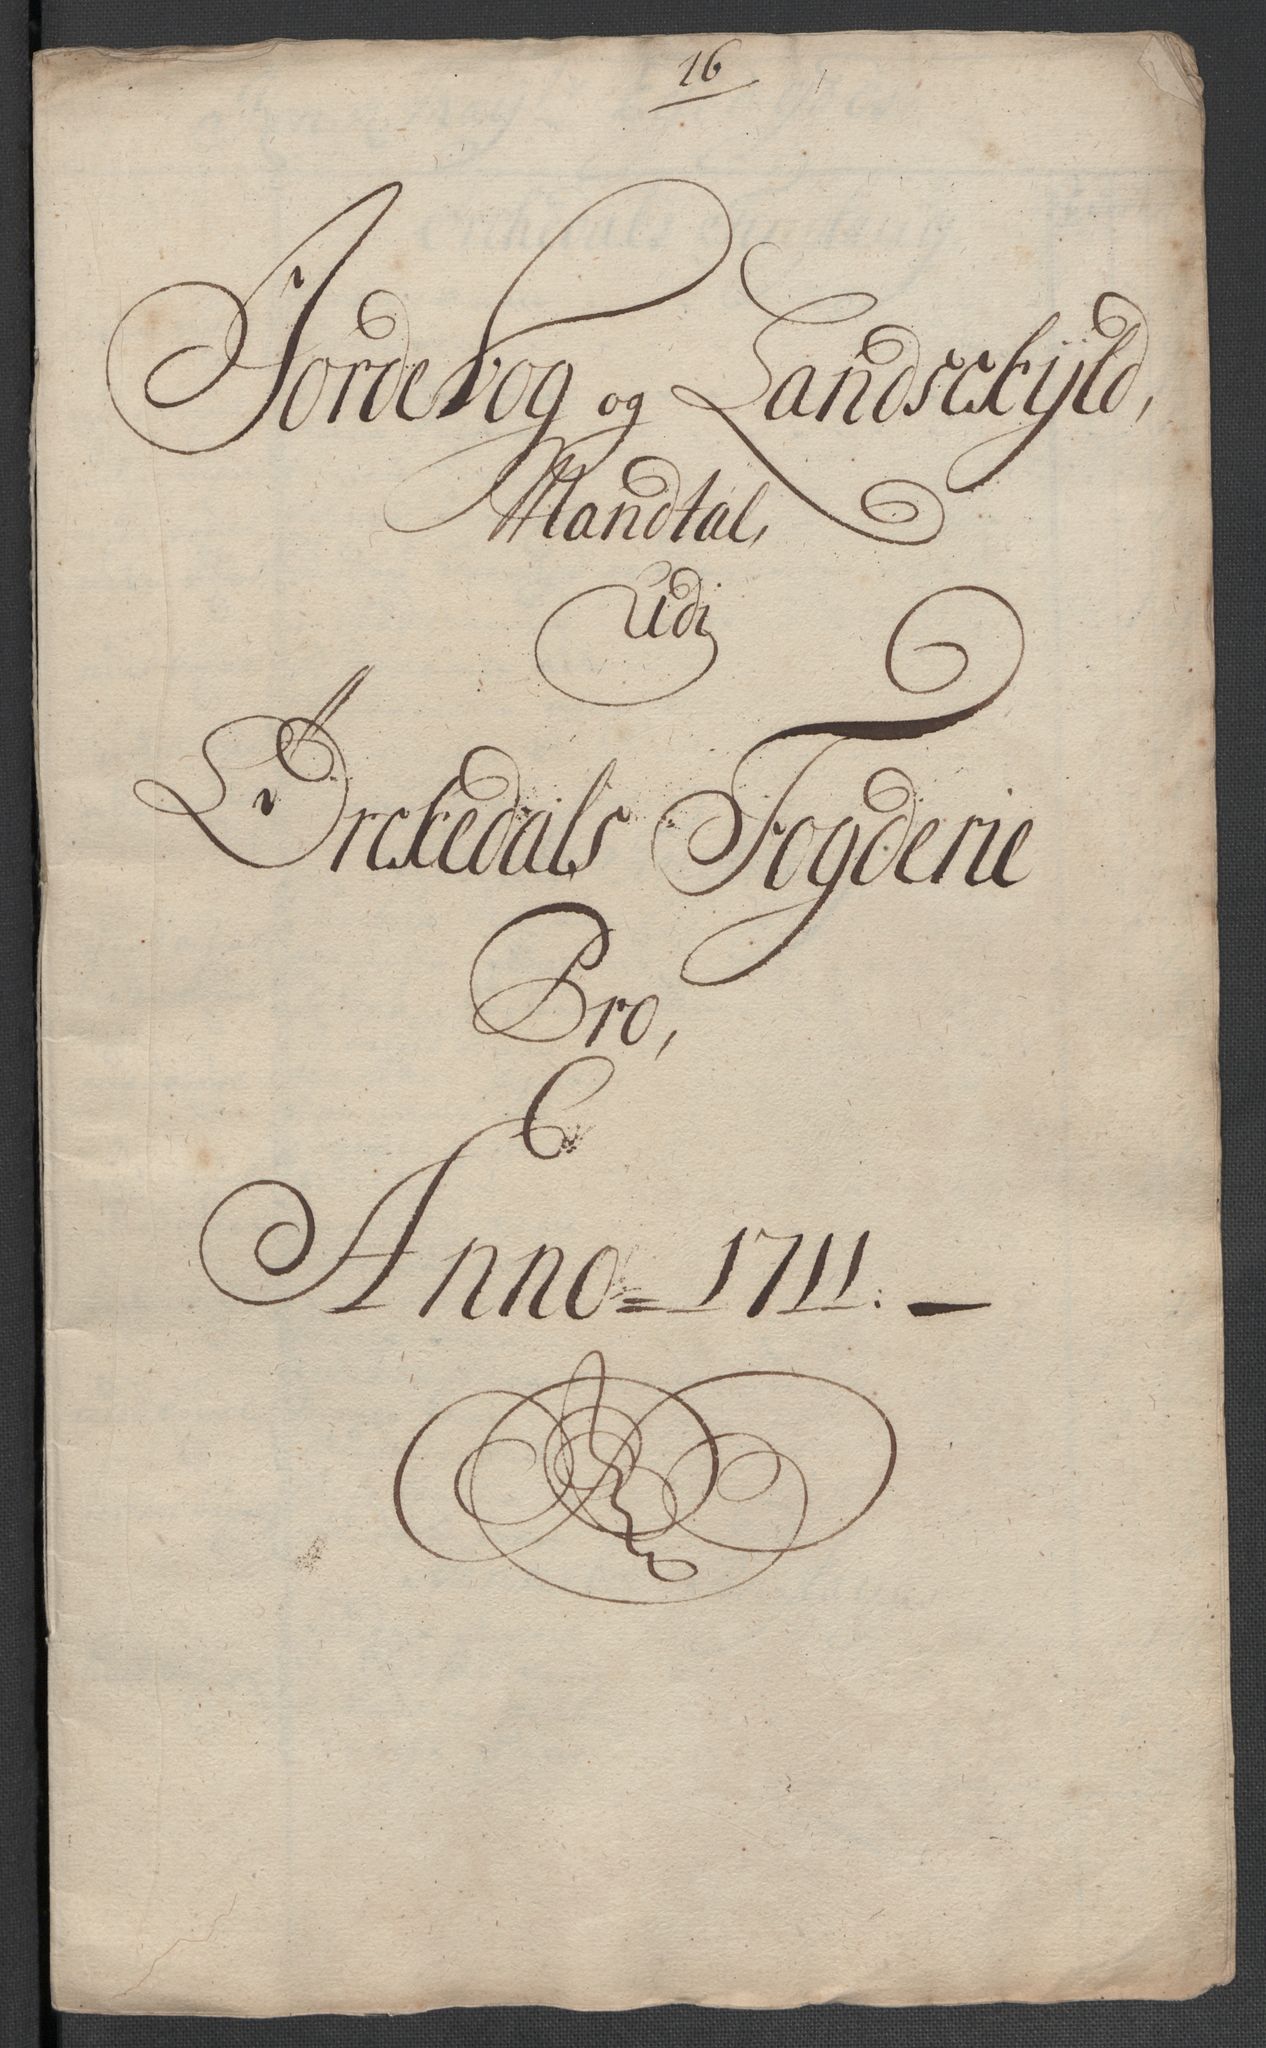 16
Jordebog og Landsckyld,
Mandtal,
Udi
Orckedals Fogderie
Pro,
Anno = 1711. —